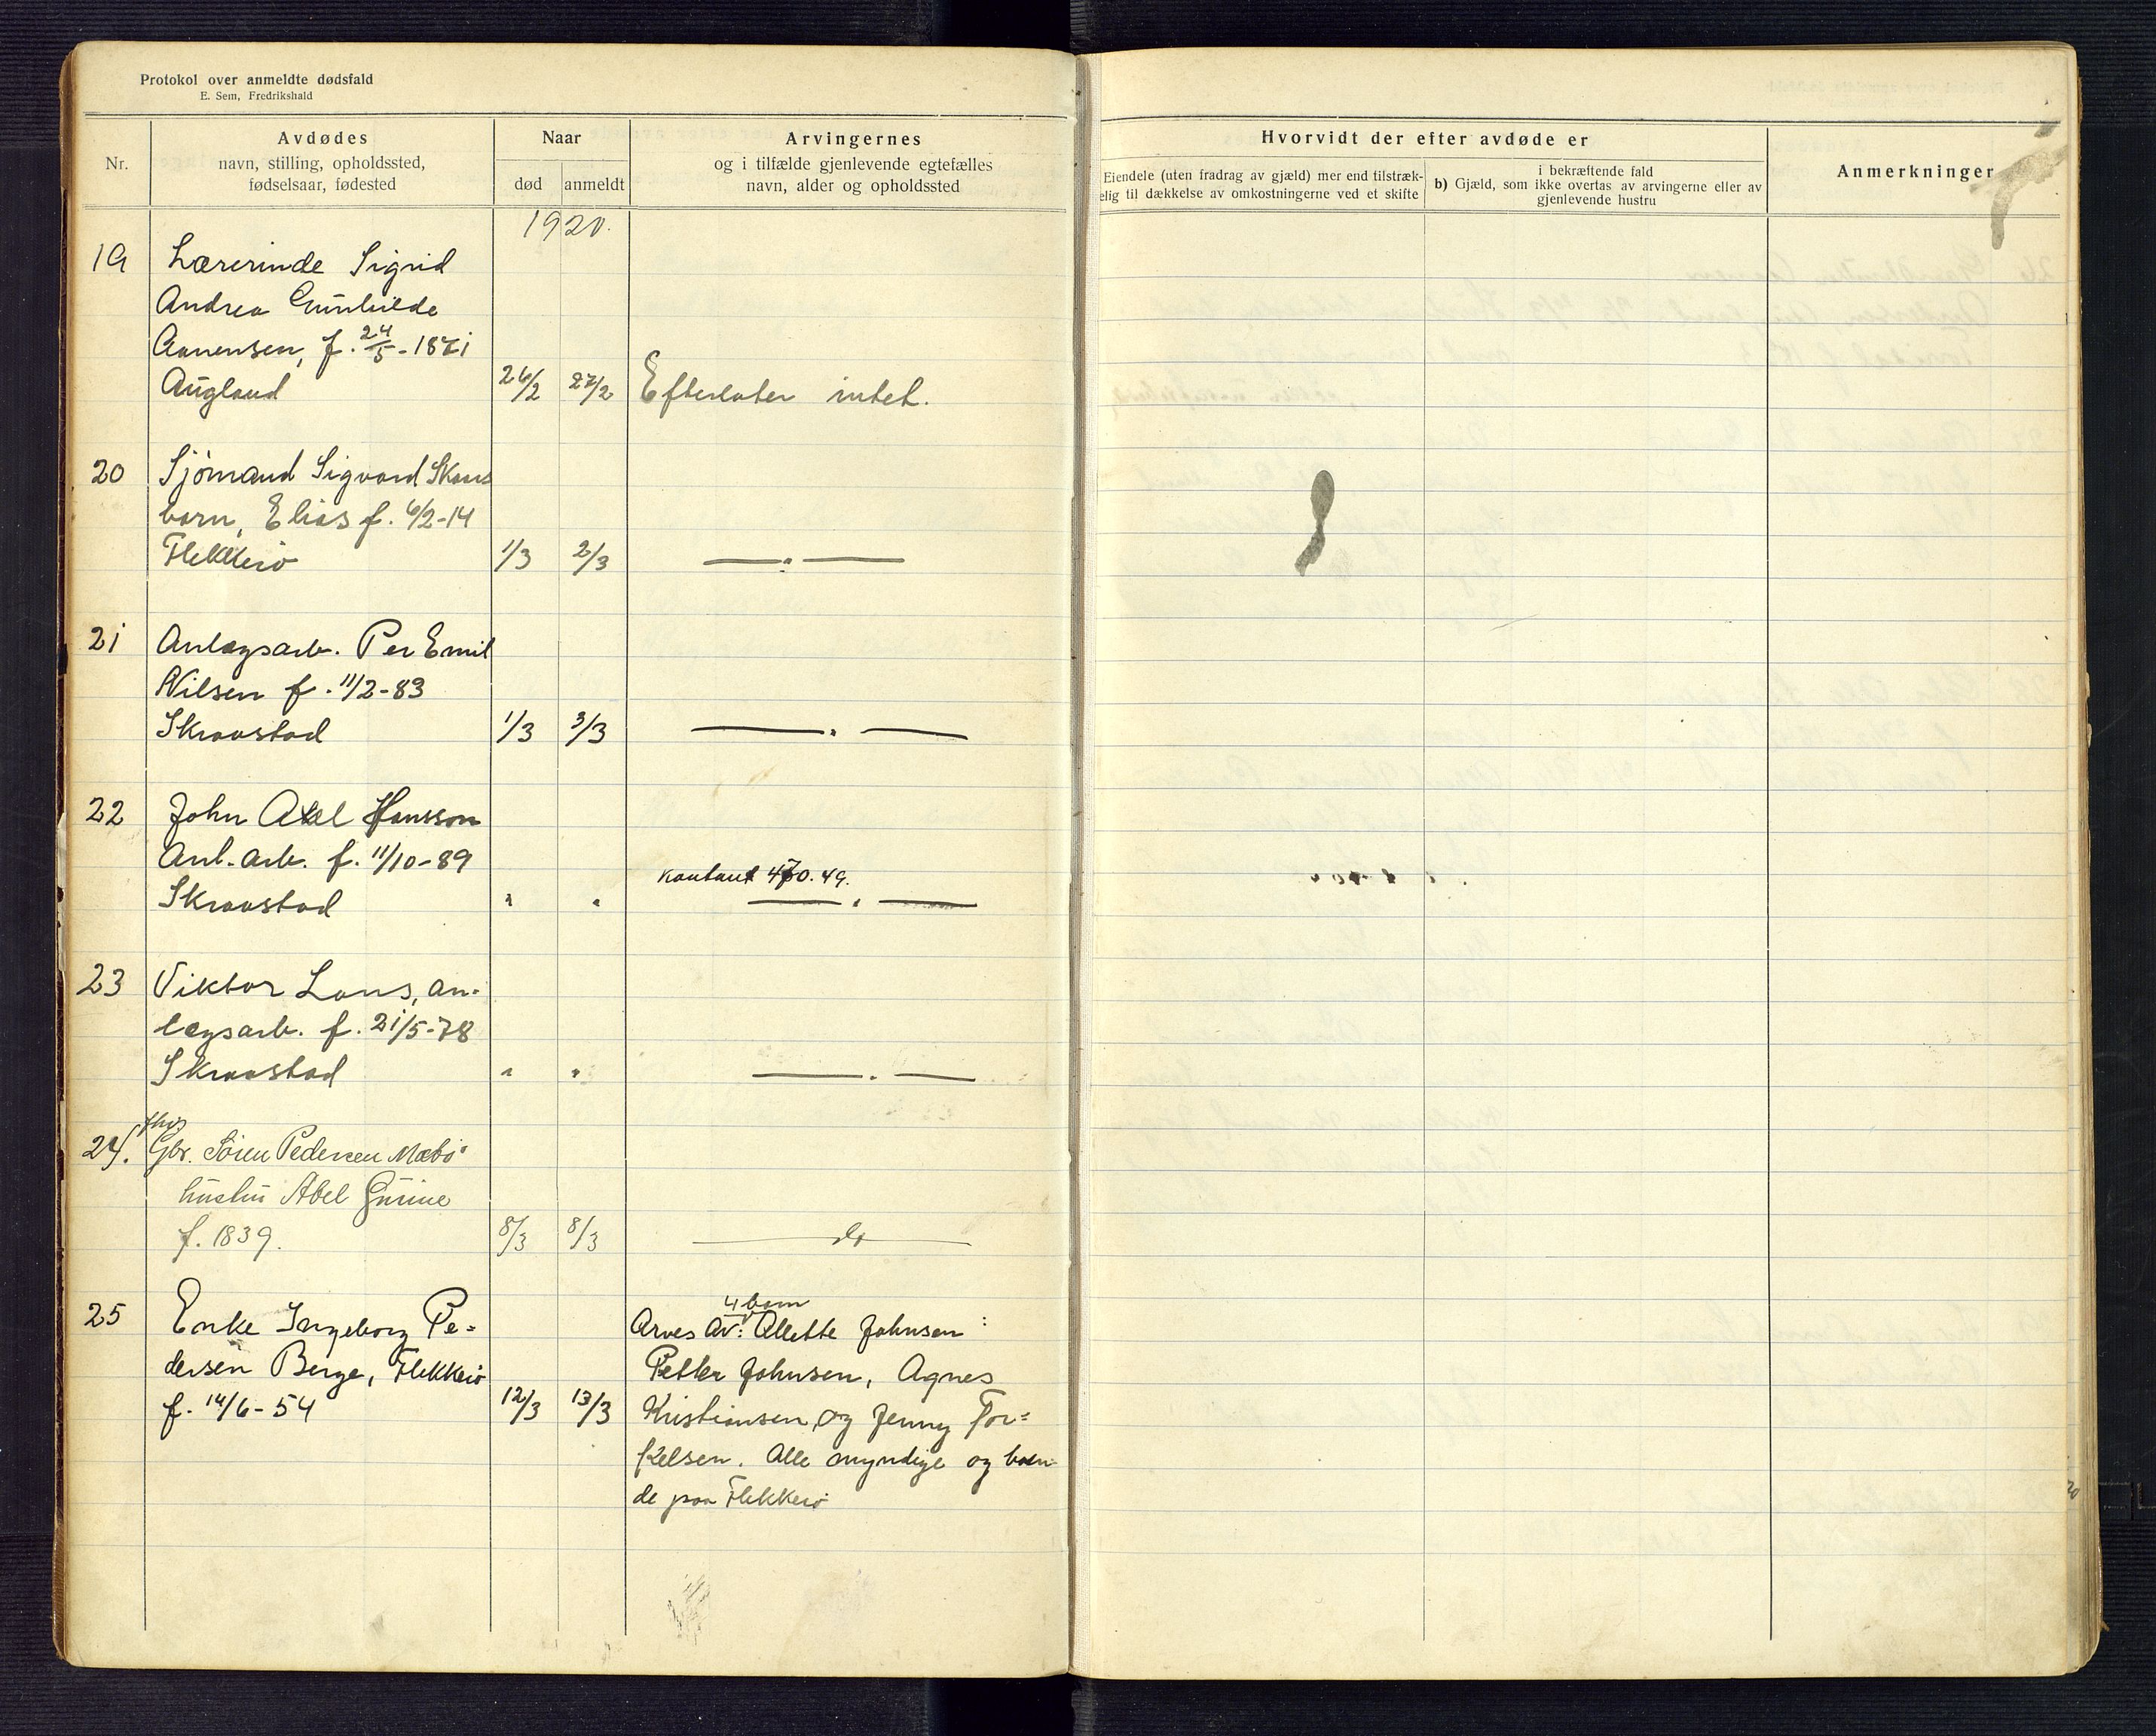 Protokol over anmeldte dødsfald
E. Sem, Fredrikshald
Nr.
Avdødes
navn, stilling, opholdssted,
fødselsaar, fødested
Naar
død
anmeldt
Arvingernes
og i tilfælde gjenlevende egtefælles
navn, alder og opholdssted
Hvorvidt der efter avdøde er
Eiendele (uten fradrag av gjæld) mer end tilstræk-
elig til dækkelse av omkostningerne ved et skifte
i bekræftende fald
b) Gjæld, som ikke overtas av arvingerne eller av
gjenlevende hustru
Anmerkninger
1920.
19 Lærerinde Sigrid
Andrea Gunhilde
Aanensen, f. 24/5-1871
Augland 26/2 27/2 Efterlater intet.
20 Sjömand Sigvard Skaus
barn, Elias f. 6/2-14
Flekkerö 1/3 2/3 — " —
21 Anlægsarb. Per Emil
Nilsen f. 11/2-83
Skraastad 1/3 3/3 — " —
22 John Axel Hansson
Anl.arb. f. 11/10-89
kontant 470.49.
Skraastad " " — " —
23 Viktor Lans, an-
lægsarb. f. 21/5-78
Skraastad " " — " —
24. Gbr. Sören Pedersen Mæbö
hustru Abel Gurine
f. 1839. 8/3 8/3 — do —
25 Enke Ingeborg Pe-
dersen Berge, Flekkerö
f. 14/6-54 12/3 13/3
4 barn
Arves av: Allette Johnsen
Petter Johnsen, Agnes
Kristiansen, og Jenny Tor=
kelsen. Alle myndige og boen-
de paa Flekkerö